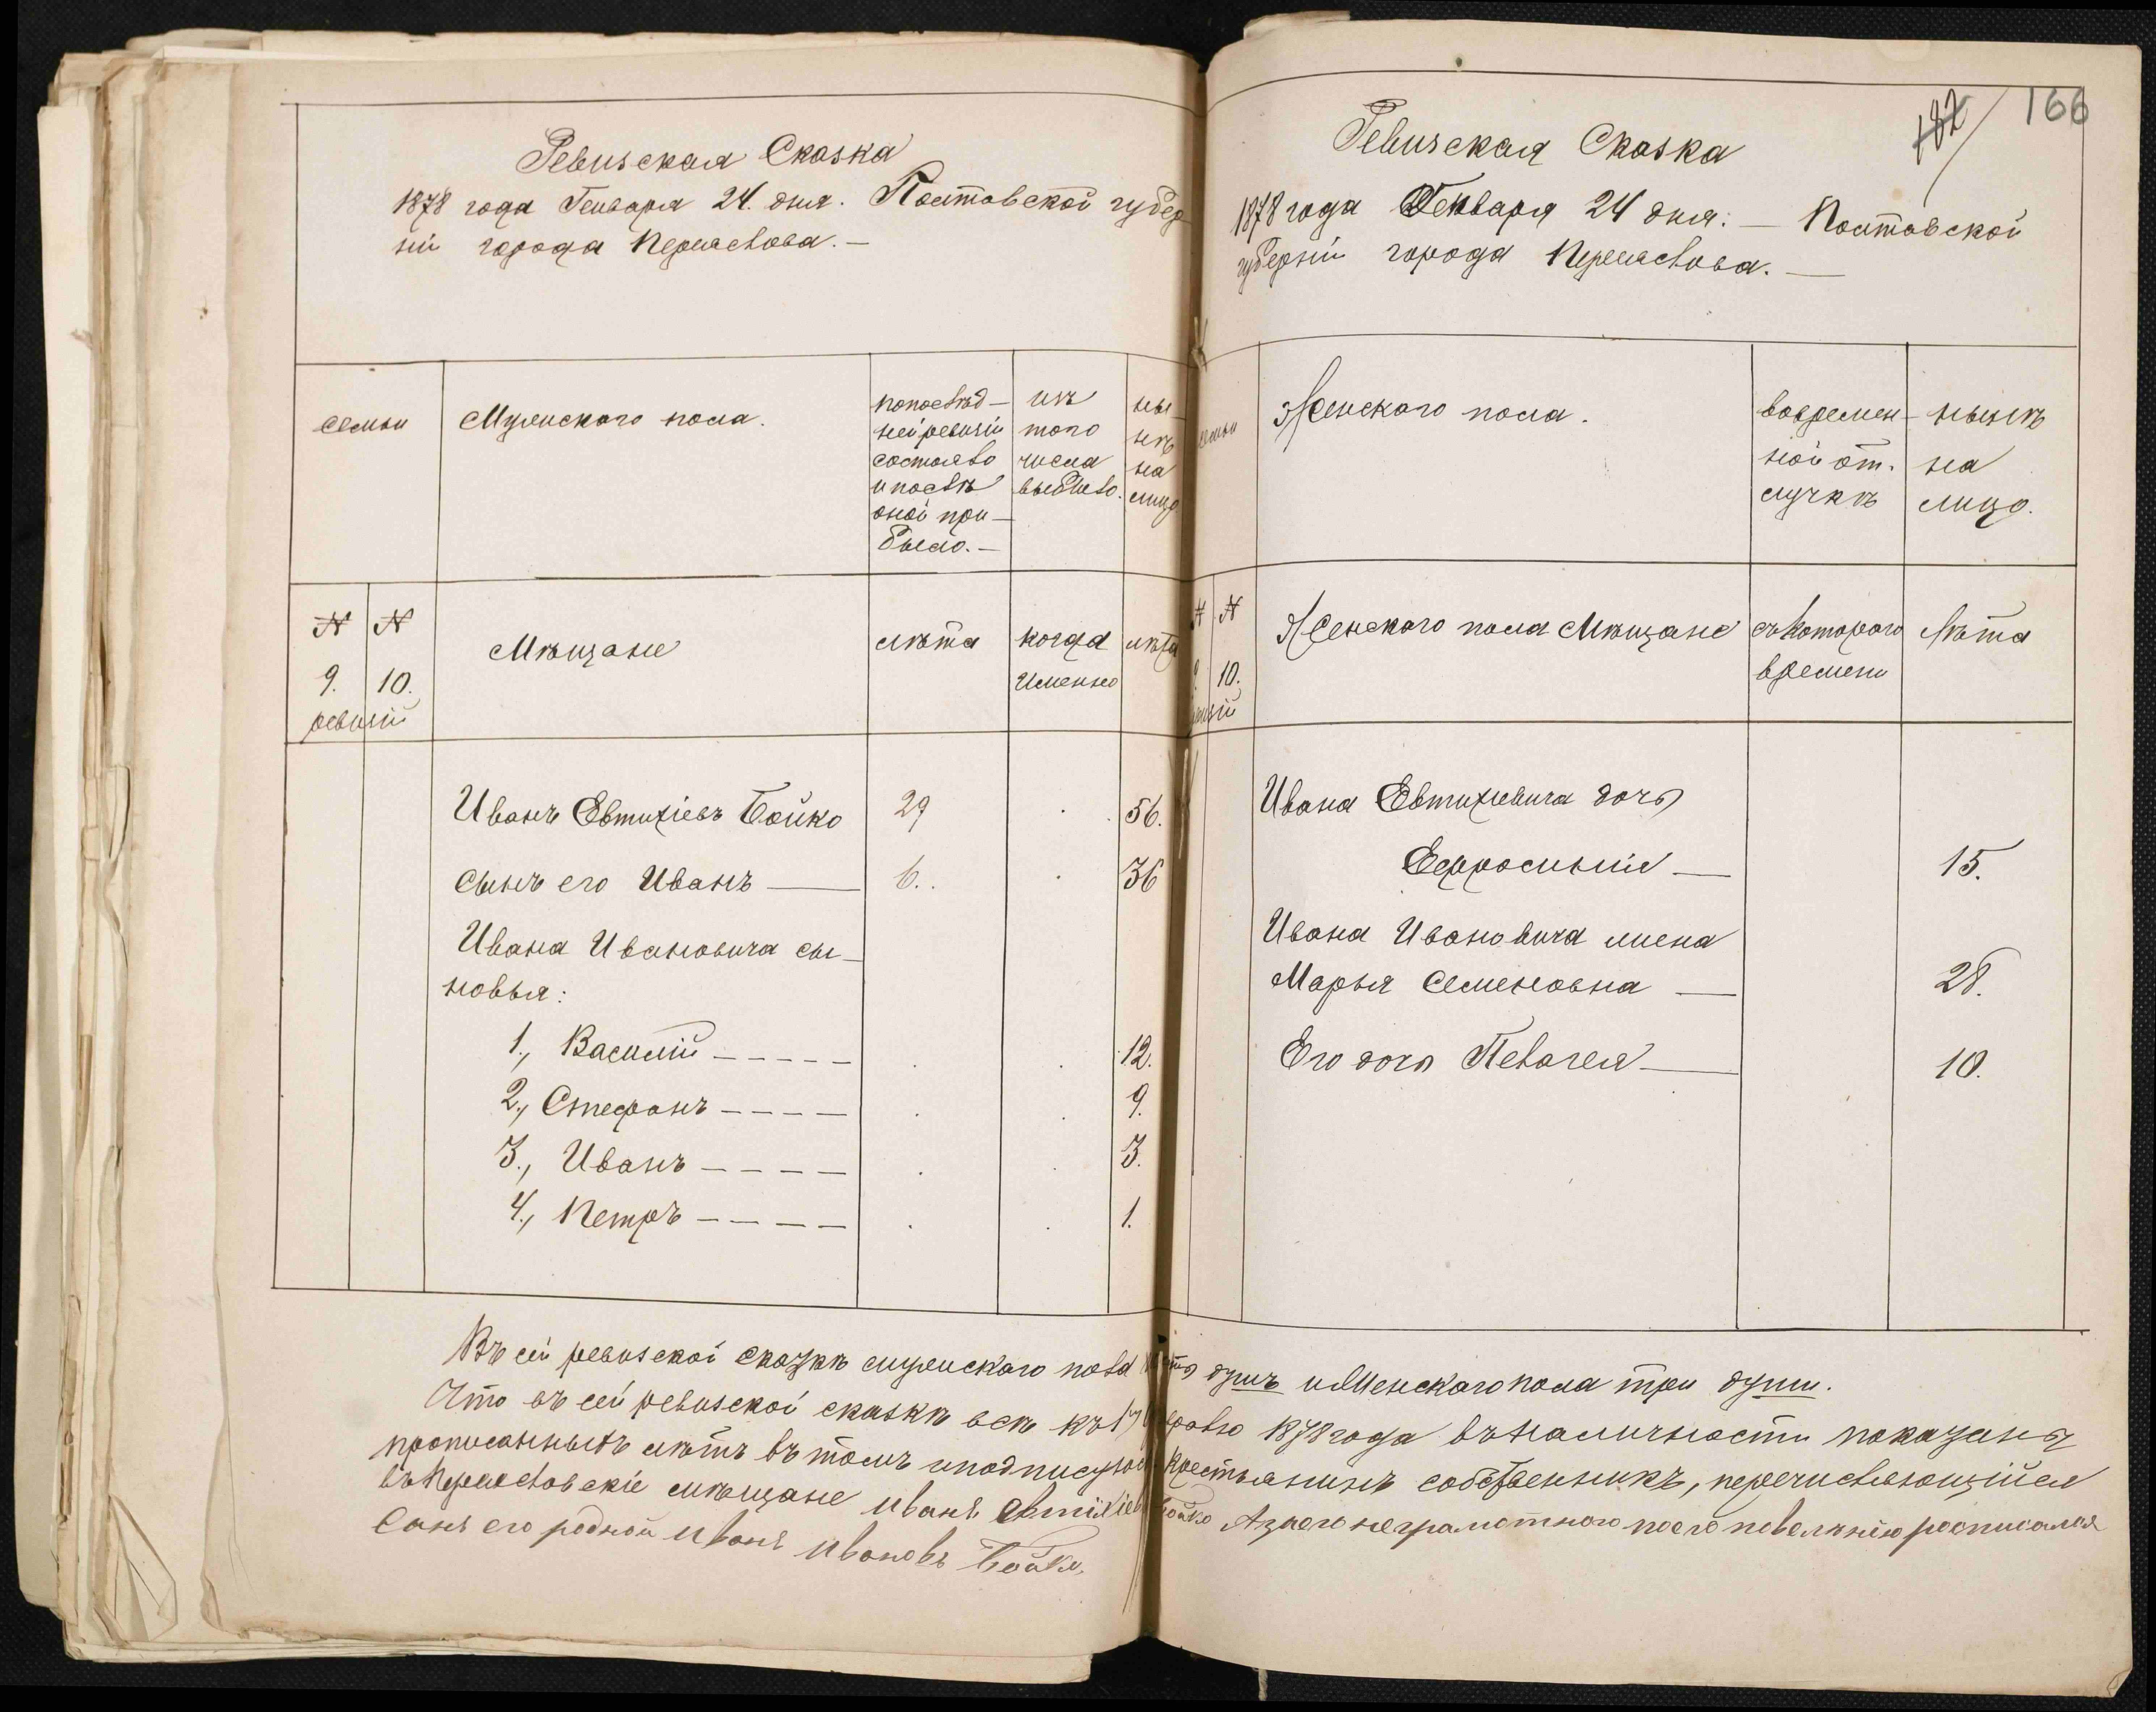 Ревизская Сказка
1878 года Генваря 24. дня. Полтавской губер
ніи города Переяслова. —
семьи
Мужеского пола.
попослѣд—
ней ревизіи
состояло
и послѣ
оной при—
было. —
изъ
того
числа
выбыло.
ны—
нѣ
на
лицо
№ №
9. 10.
ревизій
Мѣщане
лѣта
когда
именно
лѣта
Иванъ Евтихіевъ Бойко 29 . 56.
сынъ его Иванъ — 6. . 36
Ивана Ивановича сы—
новья:
1., Василій – – – – – . . 12.
2., Стефанъ – – – – . . 9.
3., Иванъ – – – – . . 3.
4., Петръ – – – – . . 1.
182 166
Ревизская Сказка
1878 года Генваря 24 дня: — Полтавской
губерніи города Переяслова. —
семьи
Женского пола.
вовремен—
ной от.
лучкѣ
нынѣ
на
лицо.
№ №
10.
Женского пола Мѣщане
съкотораго
времени
Лѣта
Ивана Евтихіевича дочь
Ефросинія — 15.
Ивана Ивановича жена
Марья Семеновна — 28.
Его дочь Пелагея — 10.
Въ сей ревизской сказкѣ мужескаго пола душъ иженскагопола три души.
Что въ сей ревизской сказкѣ всѣ къ 1878 года въналичности показаны
прописанныхъ лѣтъ въ томъ иподписуюсь крестьянинъ собственникъ, перечисляющійся
въПереясловскіе мѣщане Иванъ Евтихіевъ Бойко Азанего неграмотного поего повелѣнію росписался
Сынъ его родной Иванъ Ивановъ Бойко,